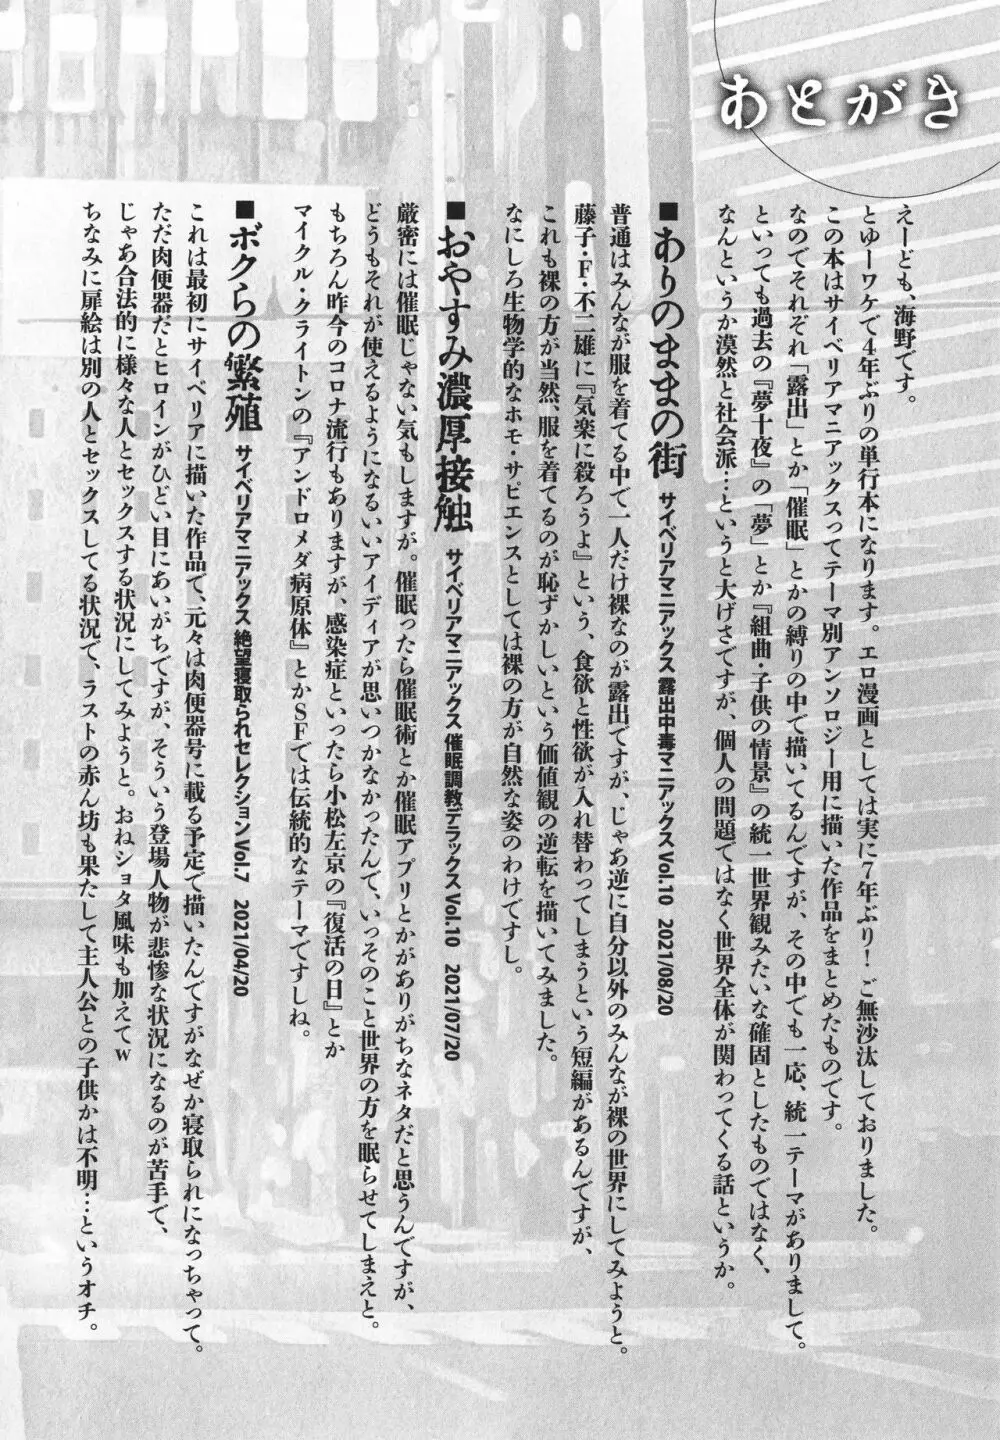 あとがき
えーども、海野です。
とゆーワケで4年ぶりの単行本になります。エロ漫画としては実に7年ぶり！ご無沙汰しておりました。
この本はサイベリアマニアックスってテーマ別アンソロジー用に描いた作品をまとめたものです。
なのでそれぞれ「露出」とか「催眠」とかの縛りの中で描いてるんですが、その中でも一応、統一テーマがありまして。
といっても過去の『夢十夜』の「夢」とか『組曲・子供の情景』の統一世界観みたいな確固としたものではなく、
なんというか漠然と社会派…というと大げさですが、個人の問題ではなく世界全体が関わってくる話というか。
■ありのままの街 サイベリアマニアックス 露出中毒マニアックス Vol.10 2021/08/20
普通はみんなが服を着てる中で一人だけ裸なのが露出ですが、じゃあ逆に自分以外のみんなが裸の世界にしてみようと。
藤子・F・不二雄に『気楽に殺ろうよ』という、食欲と性欲が入れ替わってしまうという短編があるんですが、
これも裸の方が当然、服を着てるのが恥ずかしいという価値観の逆転を描いてみました。
なにしろ生物学的なホモ・サピエンスとしては裸の方が自然な姿のわけですし。
■おやすみ濃厚接触 サイベリアマニアックス 催眠調教デラックス Vol.10 2021/07/20
厳密には催眠じゃない気もしますが。催眠ったら催眠術とか催眠アプリとかがありがちなネタだと思うんですが、
どうもそれが使えるようになるいいアイディアが思いつかなかったんで、いっそのこと世界の方を眠らせてしまえと。
もちろん昨今のコロナ流行もありますが、感染症といったら小松左京の『復活の日』とか
マイクル・クライトンの『アンドロメダ病原体』とかSFでは伝統的なテーマですしね。
■ボクらの繁殖 サイベリアマニアックス 絶望寝取られセレクション Vol.7 2021/04/20
これは最初にサイベリアに描いた作品で、元々は肉便器号に載る予定で描いたんですがなぜか寝取られになっちゃって。
ただ肉便器だとヒロインがひどい目にあいがちですが、そういう登場人物が悲惨な状況になるのが苦手で、
じゃあ合法的に様々な人とセックスする状況にしてみようと。おねショタ風味も加えてw
ちなみに扉絵は別の人とセックスしてる状況で、ラストの赤ん坊も果たして主人公との子供かは不明…というオチ。